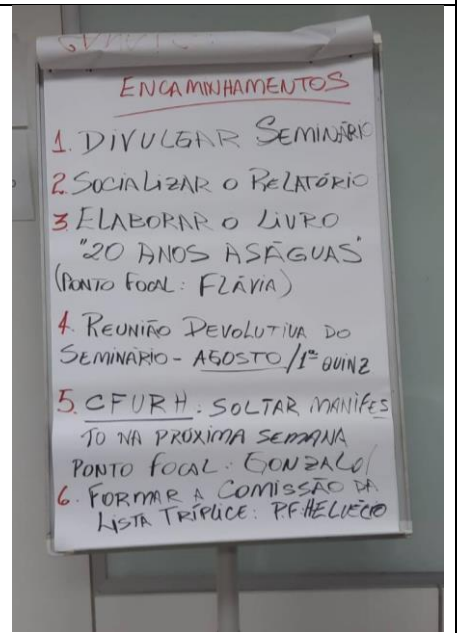 ENCAMINHAMENTOS
1. DIVULGAR SEMINÁRIO
2. SOCIALIZAR O RELATÓRIO
3 ELABORAR O LIVRO
"20 ANOS ASÁGUAS"
(PONTO FOCAL: FLÁVIA)
4. REUNIÃO DEVOLUTIVA DO
SEMINÁRIO - AGOSTO/1ª QUINZ
5. CFURH: SOLTAR MANIFES
TO NA PRÓXIMA SEMANA
PONTO FOCAL: GONZALO/
6. FORMAR A COMISSÃO DA
LISTA TRÍPLICE: P.F. HELVÉCIO